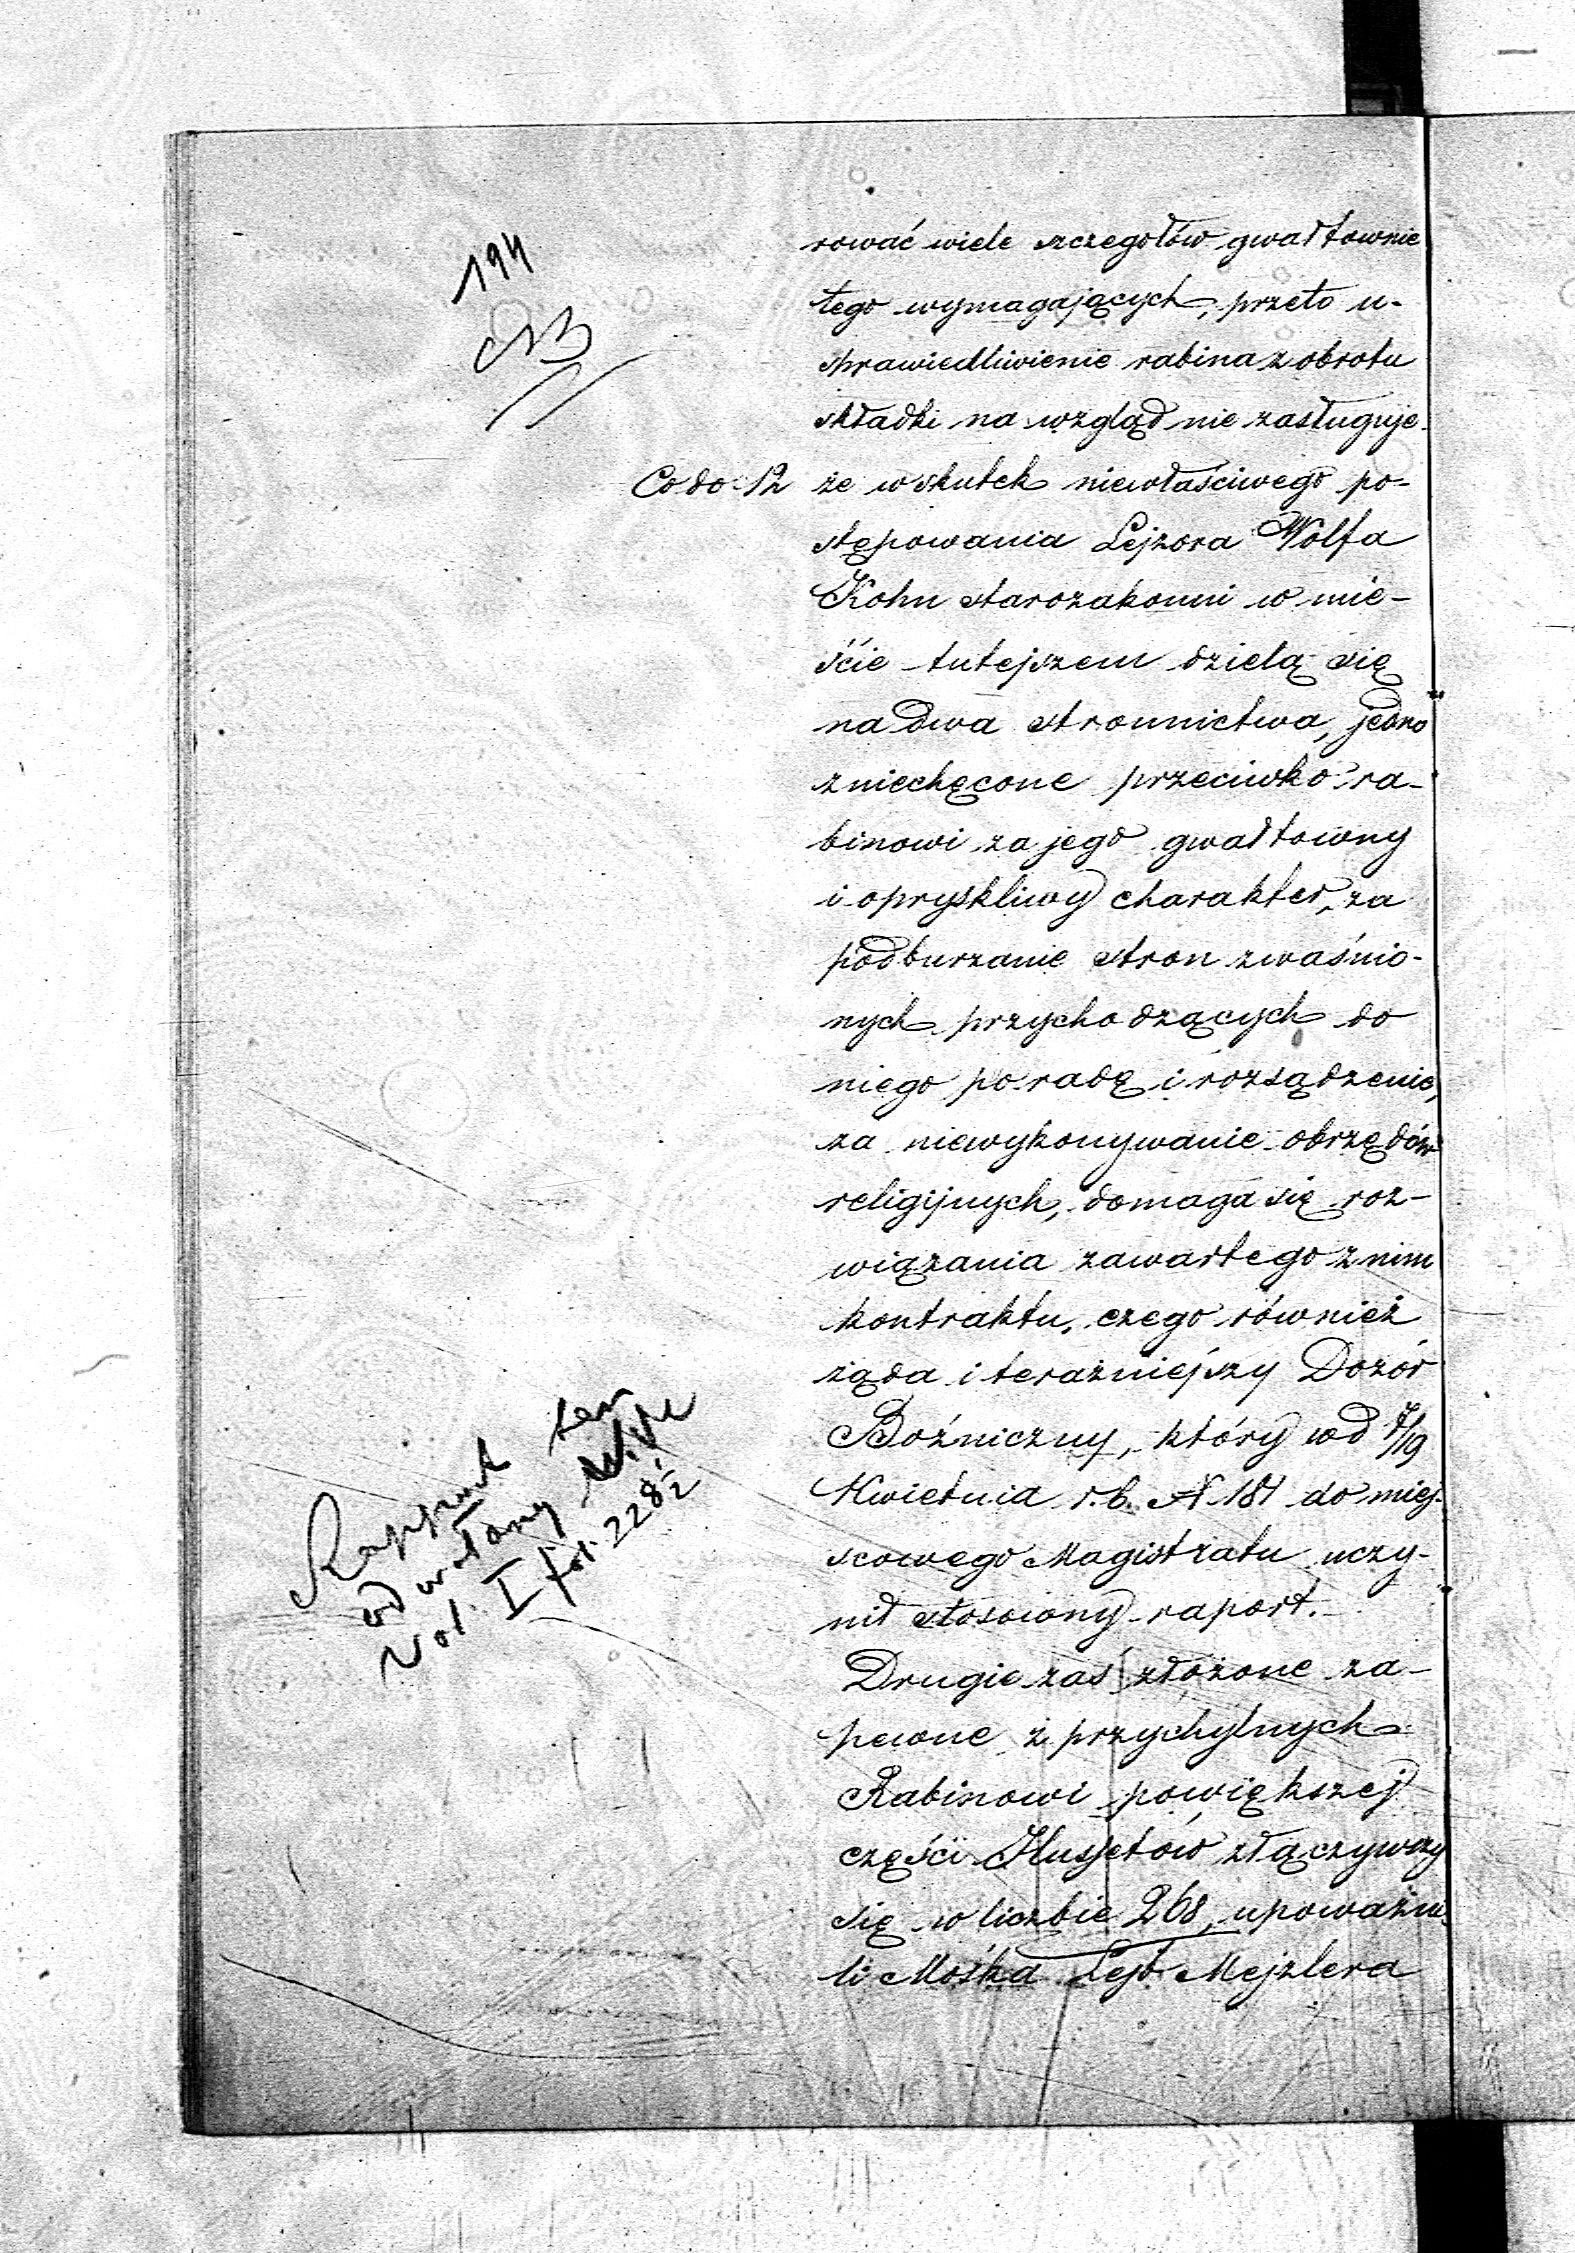 194
rować wiele szczegołów gwałtownie
tego wymagających, przeto u-
sprawiedliwienie rabina z obrotu
składki na wzgląd nie zasługuje.
Co do 12 że wskutek niewłaściwego po-
stępowania Lejzora Wolfa
Kohn starozakonni w mie-
ście tutejszem dzielą się
na dwa stronnictwa, jedno
zniechęcone przeciwko ra-
binowi za jego gwałtowny
i opryskliwy charakter, za
podburzanie stron zwaśnio-
nych przychodzących do
niego po radę i rozsądzenie,
za niewykonywanie obrzędów
religijnych, domaga się roz-
wiązania zawartego z nim
kontraktu, czego również
żąda i teraźniejszy Dozór
Bóźniczny, który w d 7/19
Kwietnia r.b. N 181 do miej-
scowego Magistratu uczy-
nił stosowny raport.
Drugie zaś złożone za-
pewne z przychylnych
Rabinowi powiększej
części Husytów złączywszy
się w liczbie 268, upoważni-
li Mośka Lejb Mejzlera
Rapport ten
odwołany
Vol. I fol. 228 1/2